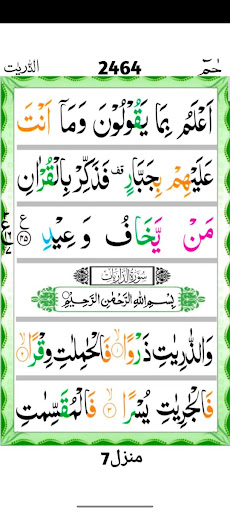 الذّٰرِيٰت 2464 حٰمٓ
اَعْلَمُ بِمَا يَقُوْلُوْنَ وَمَاۤ اَنْتَ
عَلَيْهِمْ بِجَبَّارٍ قف فَذَكِّرْ بِالْقُرْاٰنِ
مَنْ يَّخَافُ وَعِيْدِ
سُوْرَةُ الذَّارِيَاتِ
بِسْمِ اللّٰهِ الرَّحْمٰنِ الرَّحِيْمِ
وَالذّٰرِيٰتِ ذَرْوًا ۱ فَالْحٰمِلٰتِ وِقْرًا ۲
فَالْجٰرِيٰتِ يُسْرًا ۳ فَالْمُقَسِّمٰتِ
منزل 7